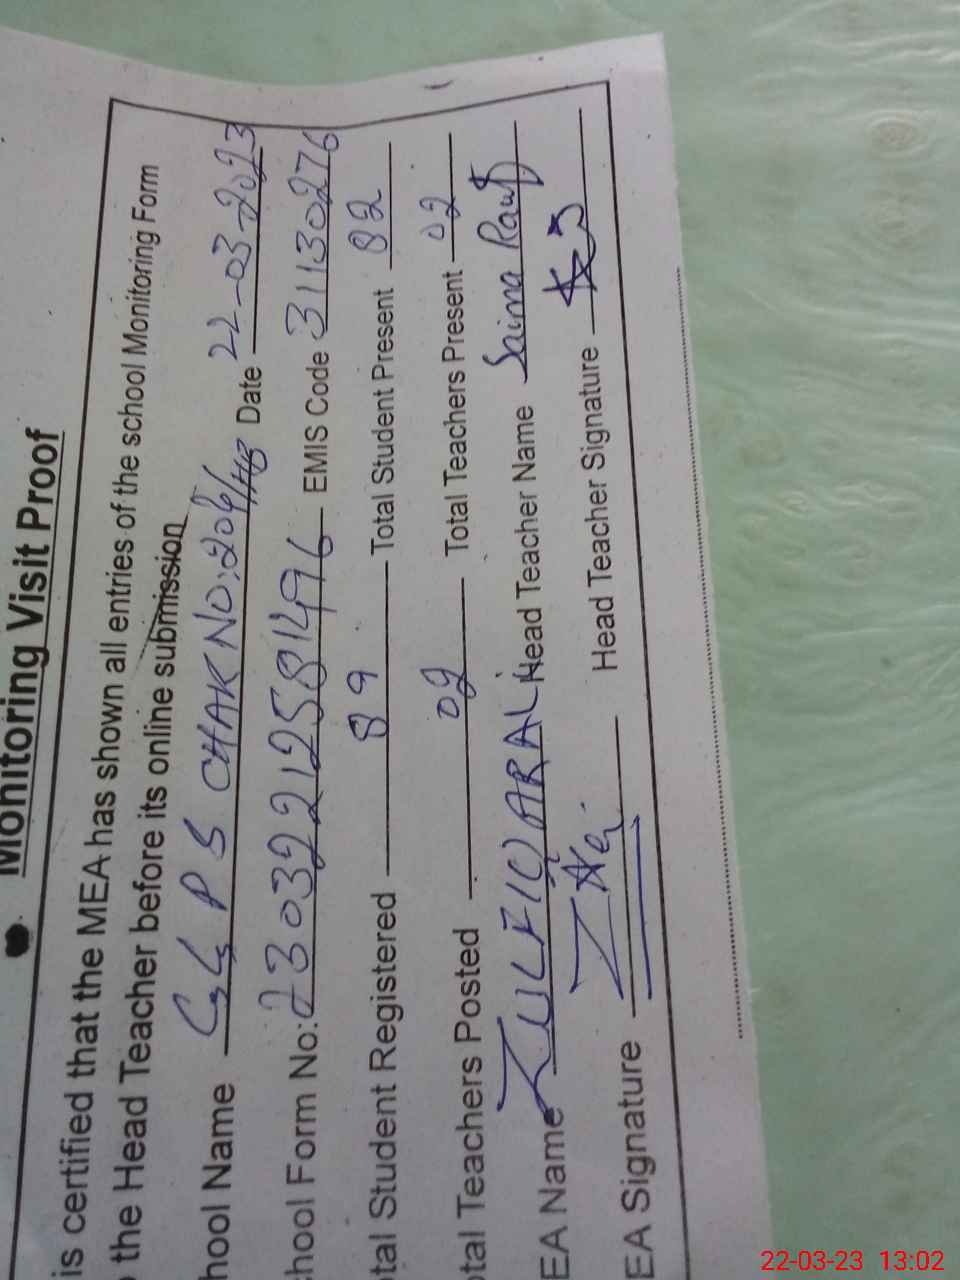 Monitoring Visit Proof
is certified that the MEA has shown all entries of the school Monitoring Form
the Head Teacher before its online submission
hool Name GGPS CHAK NO: 204/HB Date 22-03-2023
hool Form No: 23032212581496 EMIS Code 31130276
tal Student Registered 89 Total Student Present 82
tal Teachers Posted 02 Total Teachers Present 02
EA Name ZULFIQAR ALI Head Teacher Name Saima Rauf
EA Signature Head Teacher Signature
22-03-23 13:02